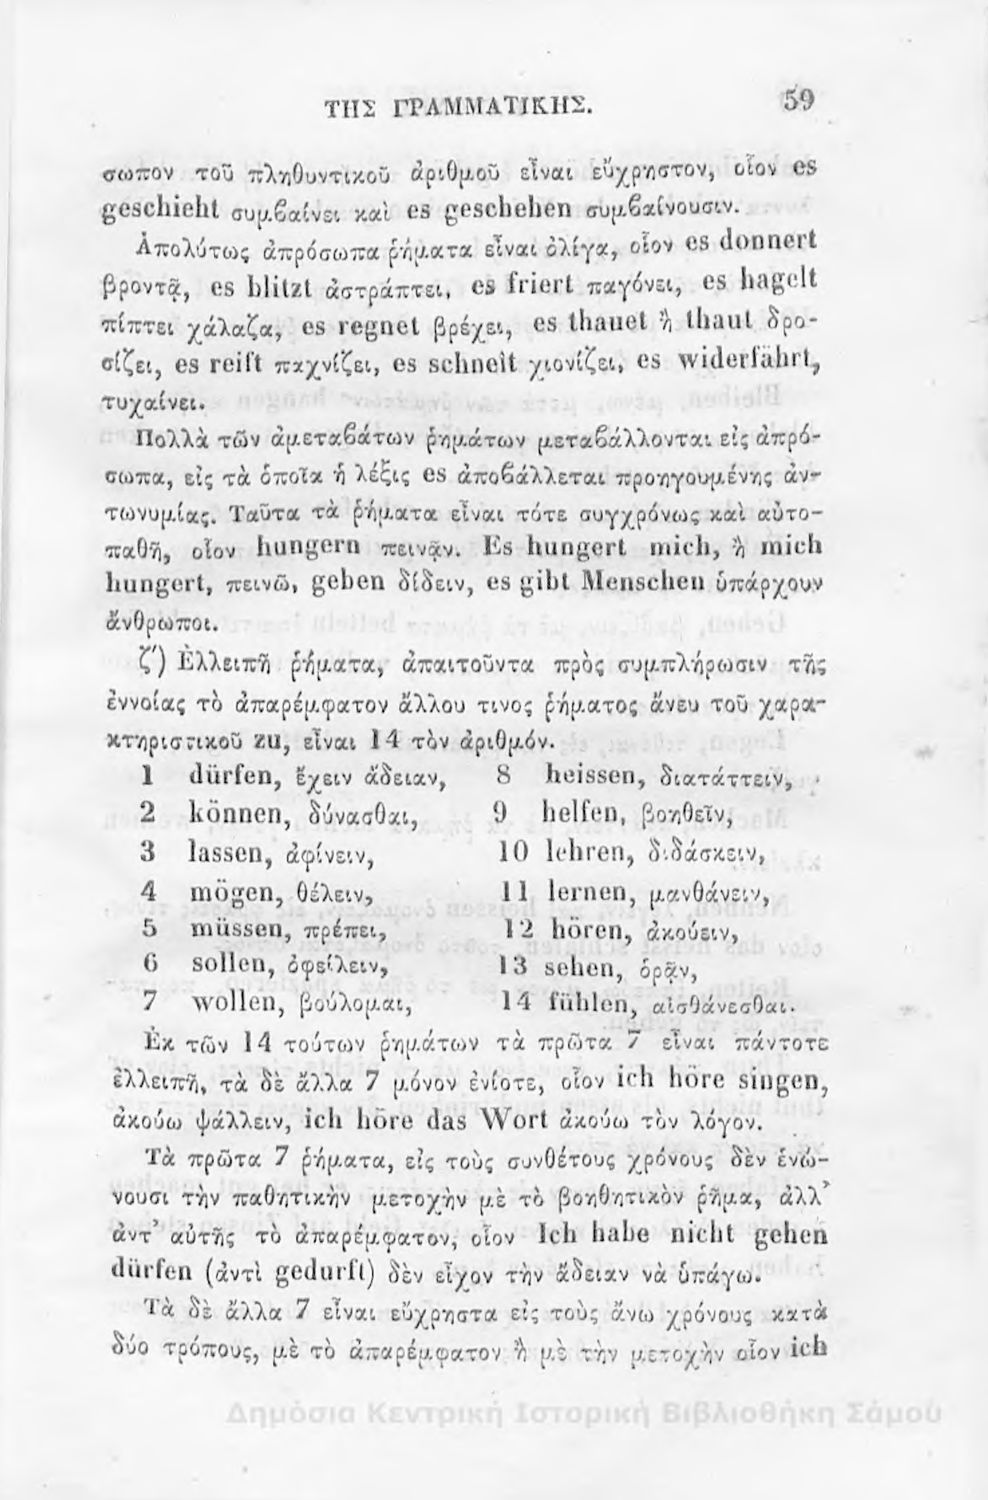 ΤΗΣ ΓΡΑΜΜΑΤΙΚΗΣ. 59
σωπον τοῦ πληθυντικοῦ ἀριθμοῦ εἶναι εὔχρηστον, οἷον es
geschieht συμβαίνει καὶ es geschehen συμβαίνουσιν.
Ἀπολύτως ἀπρόσωπα ῥήματα εἶναι ὀλίγα, οἷον es donnert
βροντᾷ, es blitzt ἀστράπτει, es friert παγόνει, es hagelt
πίπτει χάλαζα, es regnet βρέχει, es thauet ἢ thaut δρο-
σίζει, es reift παχνίζει, es schneit χιονίζει, es widerfährt,
τυχαίνει.
Πολλὰ τῶν ἀμεταβάτων ῥημάτων μεταβάλλονται εἰς ἀπρό-
σωπα, εἰς τὰ ὁποῖα ἡ λέξις es ἀποβάλλεται προηγουμένης ἀν-
τωνυμίας. Ταῦτα τὰ ῥήματα εἶναι τότε συγχρόνως καὶ αὐτο-
παθῆ, οἷον hungern πεινᾷν. Es hungert mich, ἢ mich
hungert, πεινῶ, geben δίδειν, es gibt Menschen ὑπάρχουν
ἄνθρωποι.
ζ') Ἐλλειπῆ ῥήματα, ἀπαιτοῦντα πρὸς συμπλήρωσιν τῆς
ἐννοίας τὸ ἀπαρέμφατον ἄλλου τινος ῥήματος ἄνευ τοῦ χαρα-
κτηριστικοῦ zu, εἶναι 14 τὸν ἀριθμόν.
1 dürfen, ἔχειν ἄδειαν, 8 heissen, διατάττειν,
2 können, δύνασθαι, 9 helfen, βοηθεῖν,
3 lassen, ἀφίνειν, 10 lehren, διδάσκειν,
4 mögen, θέλειν, 11 lernen, μανθάνειν,
5 müssen, πρέπει, 12 hören, ἀκούειν,
6 sollen, ὀφείλειν, 13 sehen, ὁρᾷν,
7 wollen, βούλομαι, 14 fühlen, αἰσθάνεσθαι.
Ἐκ τῶν 14 τούτων ῥημάτων τὰ πρῶτα 7 εἶναι πάντοτε
ἐλλειπῆ, τὰ δὲ ἄλλα 7 μόνον ἐνίοτε, οἷον ich höre singen,
ἀκούω ψάλλειν, ich höre das Wort ἀκούω τὸν λόγον.
Τὰ πρῶτα 7 ῥήματα, εἰς τοὺς συνθέτους χρόνους δὲν ἑνώ-
νουσι τὴν παθητικὴν μετοχὴν μὲ τὸ βοηθητικὸν ῥῆμα, ἀλλ'
ἀντ' αὐτῆς τὸ ἀπαρέμφατον, οἷον Ich habe nicht gehen
dürfen (ἀντὶ gedurft) δὲν εἶχον τὴν ἄδειαν νὰ ὑπάγω.
Τὰ δὲ ἄλλα 7 εἶναι εὔχρηστα εἰς τοὺς ἄνω χρόνους κατὰ
δύο τρόπους, μὲ τὸ ἀπαρέμφατον ἢ μὲ τὴν μετοχὴν οἷον ich
Δημόσια Κεντρική Ιστορική Βιβλιοθήκη Σάμου